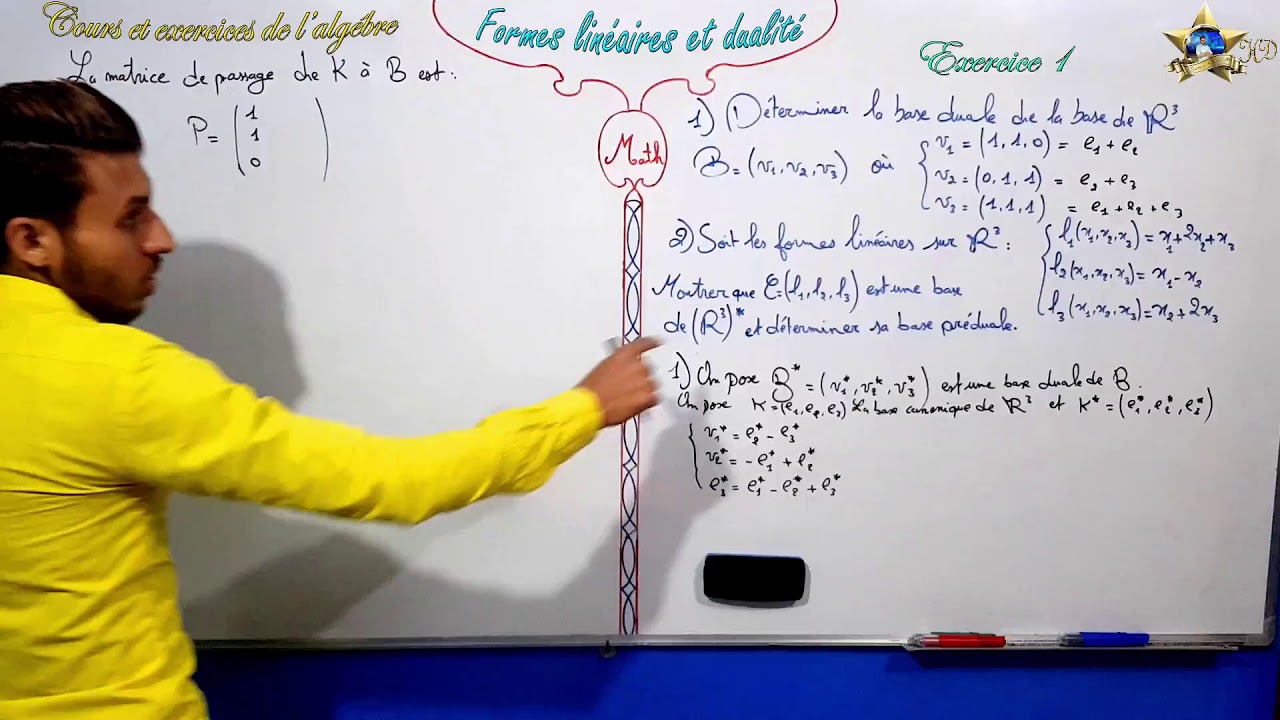 Cours et exercices de l'algébre
Formes linéaires et dualité
Exercice 1
HD
La matrice de passage de K à B est:
P = (1
1
0)
Math
1) Déterminer la base duale de la base de ℝ³
B = (v₁, v₂, v₃) où { v₁ = (1, 1, 0) = e₁ + e₂
v₂ = (0, 1, 1) = e₂ + e₃
v₃ = (1, 1, 1) = e₁ + e₂ + e₃
2) Soit les formes linéaires sur ℝ³: { l₁(x₁, x₂, x₃) = x₁ + 2x₂ + x₃
l₂(x₁, x₂, x₃) = x₁ - x₂
l₃(x₁, x₂, x₃) = x₂ + 2x₃
Montrer que C = (l₁, l₂, l₃) est une base
de (ℝ³)* et déterminer sa base préduale.
1) On pose B* = (v₁*, v₂*, v₃*) est une base duale de B.
On pose K = (e₁, e₂, e₃) la base canonique de ℝ³ et K* = (e₁*, e₂*, e₃*)
{ v₁* = e₂* - e₃*
v₂* = -e₁* + e₂*
e₃* = e₁* - e₂* + e₃*